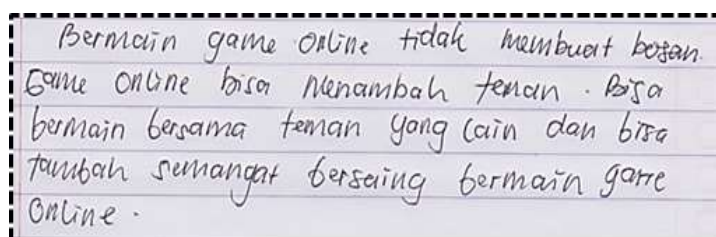 Bermain game online tidak membuat bosan.
Game online bisa menambah teman. Bisa
bermain bersama teman yang lain dan bisa
tambah semangat bersaing bermain game
online.